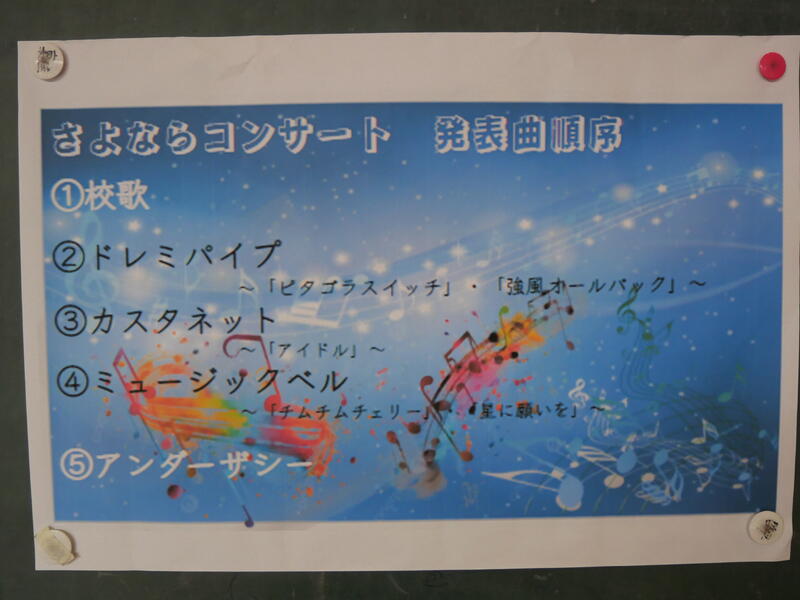 さよならコンサート　発表曲順序
①校歌
②ドレミパイプ
～「ピタゴラスイッチ」・「強風オールバック」～
③カスタネット
～「アイドル」～
④ミュージックベル
～「チムチムチェリー」・「星に願いを」～
⑤アンダーザシー